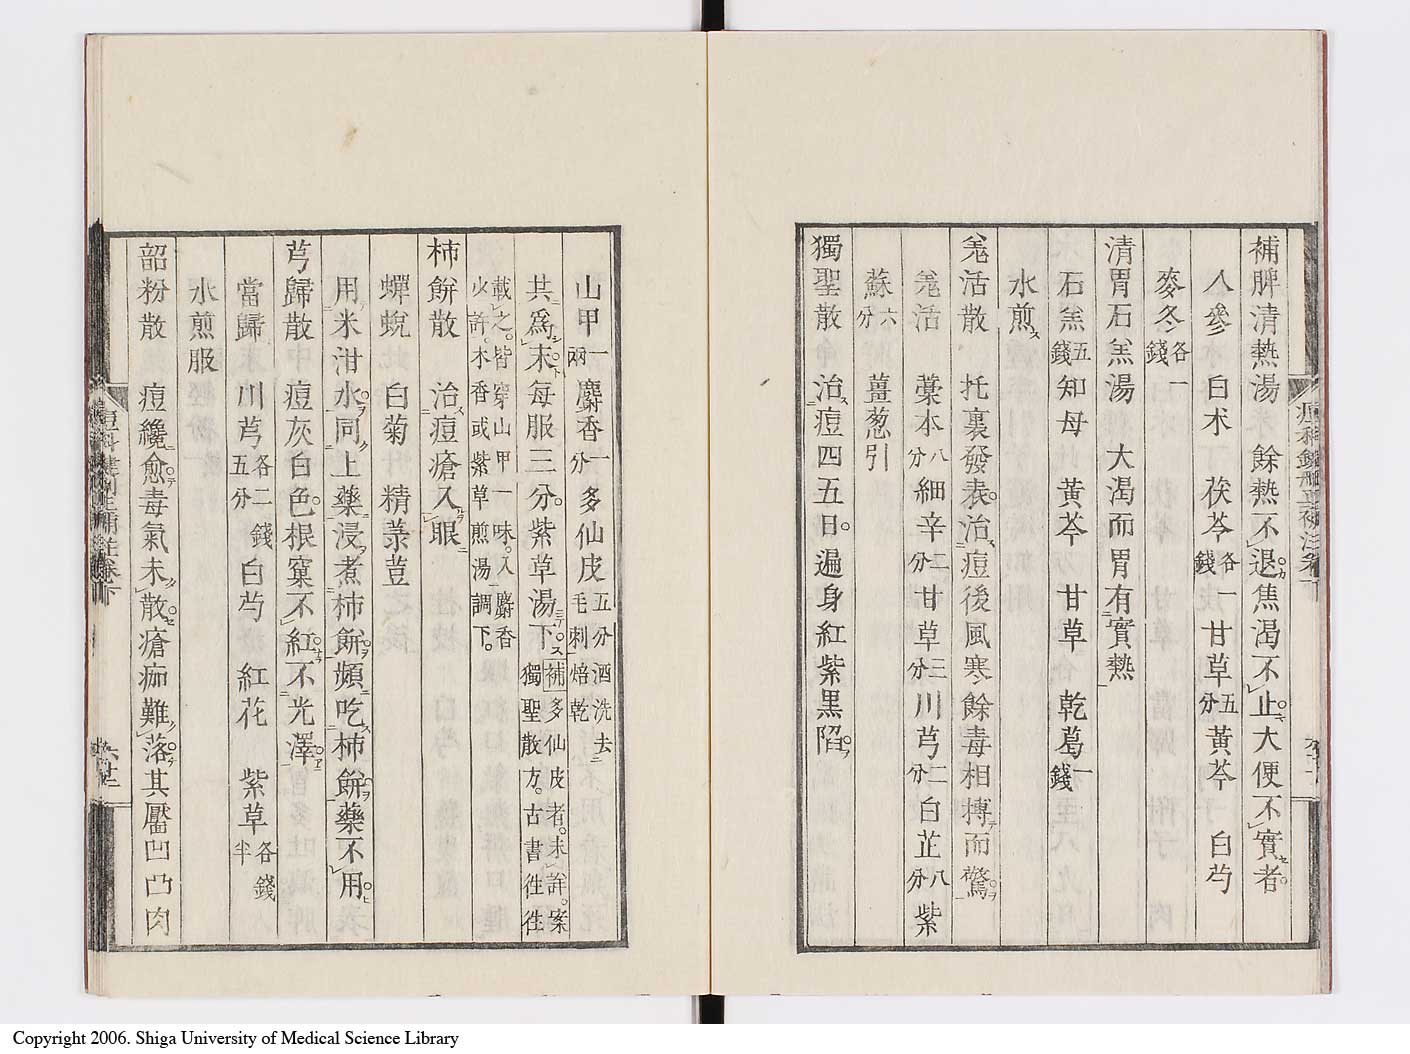 補脾清熱湯　餘熱不退焦渴不止大便不實者
人參　白朮　茯苓各一錢甘草五分黃芩　白芍
麥冬各一錢
清胃石羔湯　大渴而胃有實熱
石羔五錢知母　黃芩　甘草　乾葛一錢
水煎
羗活散　托裏發表治痘後風寒餘毒相搏而驚
羗活　藁本八分細辛二分甘草三分川芎二分白芷八分紫
蘇六分　薑葱引
獨聖散　治痘四五日遍身紅紫黑陷
山甲一兩麝香一分多仙皮五分酒洗去毛刺焙乾
共爲末每服三分紫草湯下補多仙皮者未詳案獨聖散方古書往往
載之皆穿山甲一味入麝香少許木香或紫草煎湯調下
柿餅散　治痘瘡入眼
蟬蛻　白菊　精羔荳
用米泔水同上藥浸煮柿餅頻吃柿餅藥不用
芎歸散　痘灰白色根窠不紅不光澤
當歸　川芎各二錢五分白芍　紅花　紫草各半錢
水煎服
韶粉散　痘纔愈毒氣未散瘡痂難落其靨凹凸肉
Copyright 2006. Shiga University of Medical Science Library